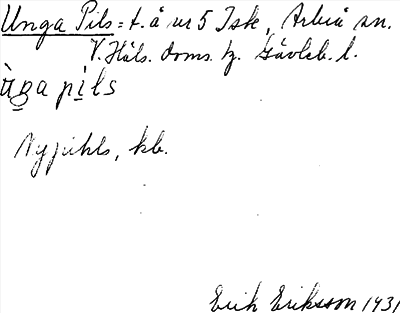 Unga Pils = t. å nr 5 Isk, Arbrå sn.
V. Häls. doms. hg. Gävleb. l.
pils
Nypihls, kb.
Erik Eriksson 1931